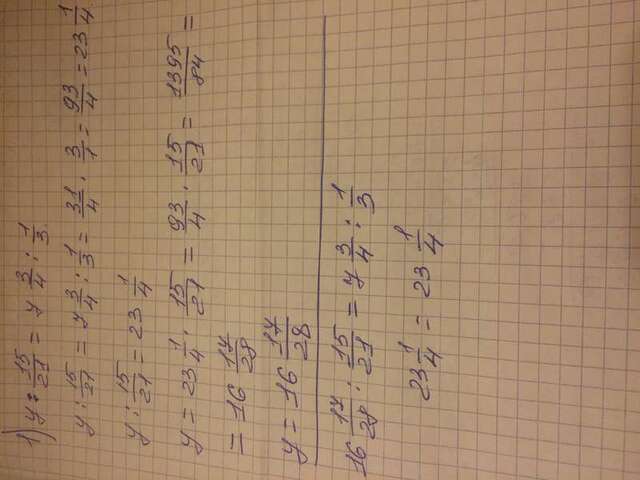 1) y : 15/21 = 7 3/4 : 1/3
y : 15/21 = 7 3/4 : 1/3 = 31/4 · 3/1 = 93/4 = 23 1/4
y : 15/21 = 23 1/4
y = 23 1/4 · 15/21 = 93/4 · 15/21 = 1395/84 =
= 16 17/28
y = 16 17/28
16 17/28 : 15/21 = 7 3/4 : 1/3
23 1/4 = 23 1/4